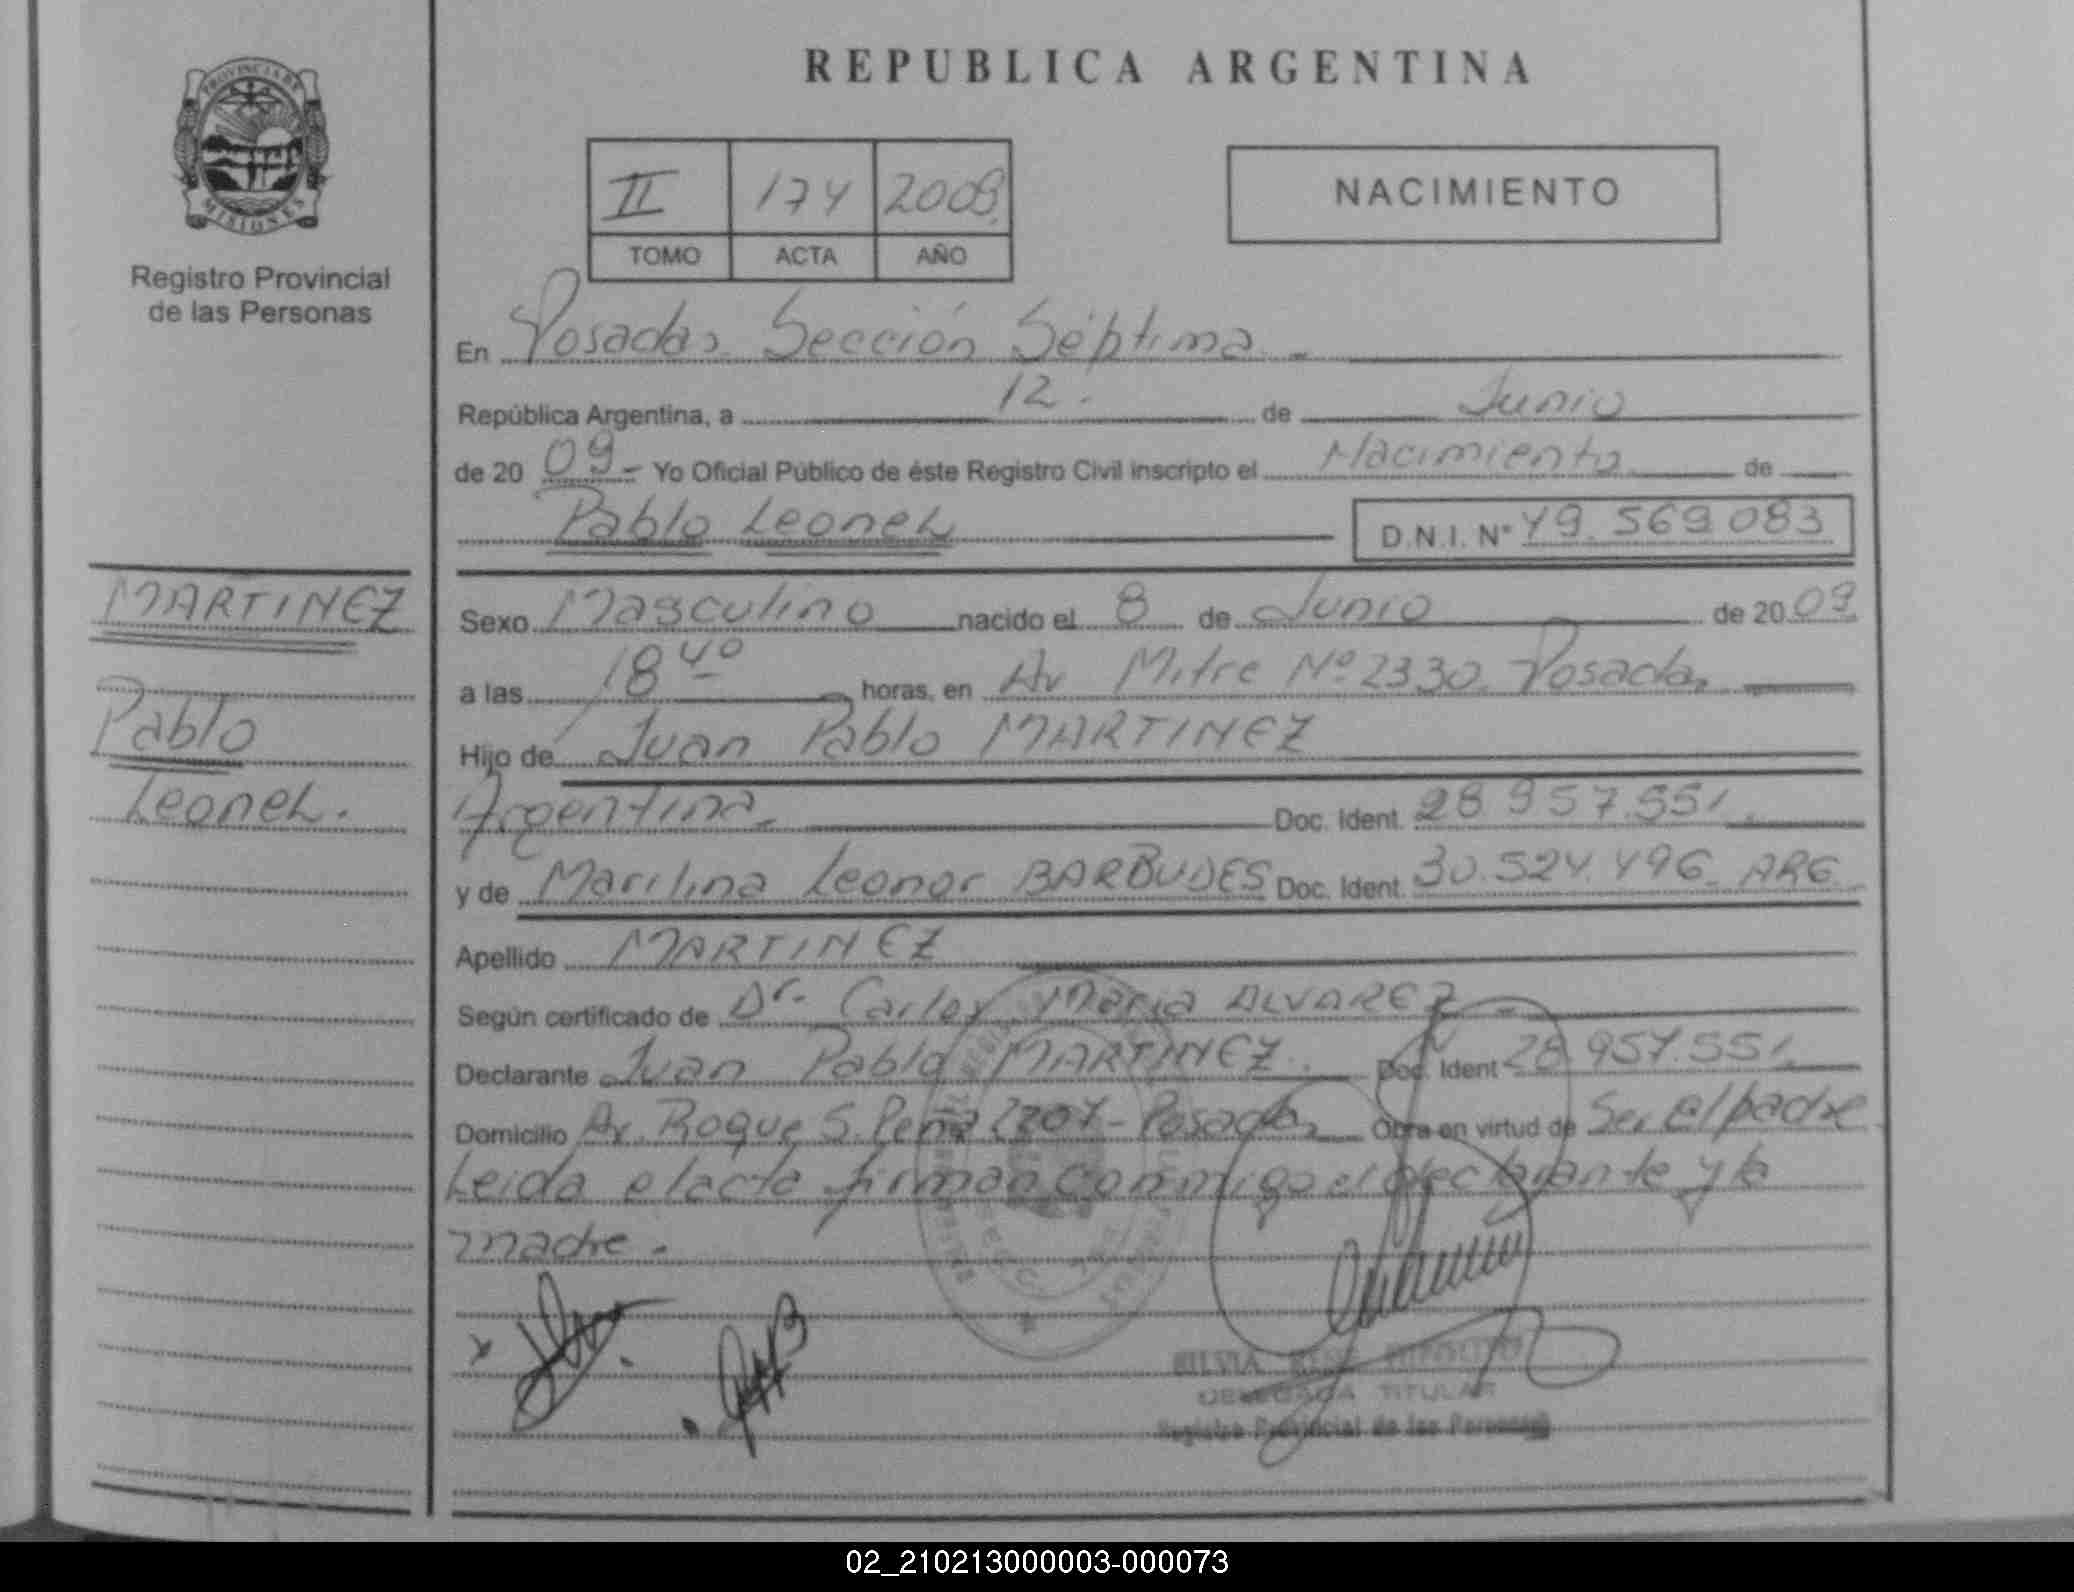 PROVINCIA DE
MISIONES
Registro Provincial
de las Personas
REPUBLICA ARGENTINA
II 174 2009
TOMO ACTA AÑO
NACIMIENTO
En Posadas Sección Séptima
República Argentina, a 12 de Junio
de 20 09 Yo Oficial Público de éste Registro Civil inscripto el Nacimiento de
Pablo Leonel D.N.I. N° 49.569.083
MARTINEZ
Pablo
Leonel.
Sexo Masculino nacido el 8 de Junio de 20 09
a las 18 40 horas, en Av Mitre Nº 2330 Posadas
Hijo de Juan Pablo MARTINEZ
Argentina Doc. Ident. 28.957.551
y de Marilina Leonor BARBUDES Doc. Ident. 30.524.496 ARG
Apellido MARTINEZ
Según certificado de Dr. Carlos Maria ALVAREZ
Declarante Juan Pablo MARTINEZ. Doc. Ident 28.957.551
Domicilio Av. Roque S. Peña 2207 - Posadas Obra en virtud de Ser el padre
Leida el acta firman conmigo el declarante y la
madre.
SILVIA HIPOLITO
DELEGADA TITULAR
Registro Provincial de las Personas
02_210213000003-000073